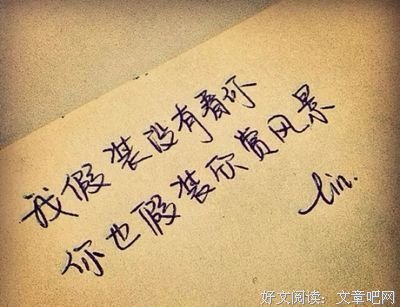 我假装没有看你
你也假装欣赏风景
lin.
好文阅读：文章吧网